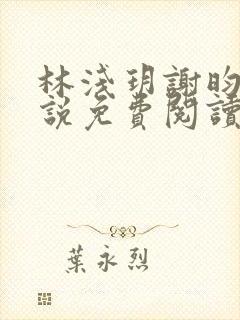 林淺玥謝昀
說免費閱讀
葉永烈